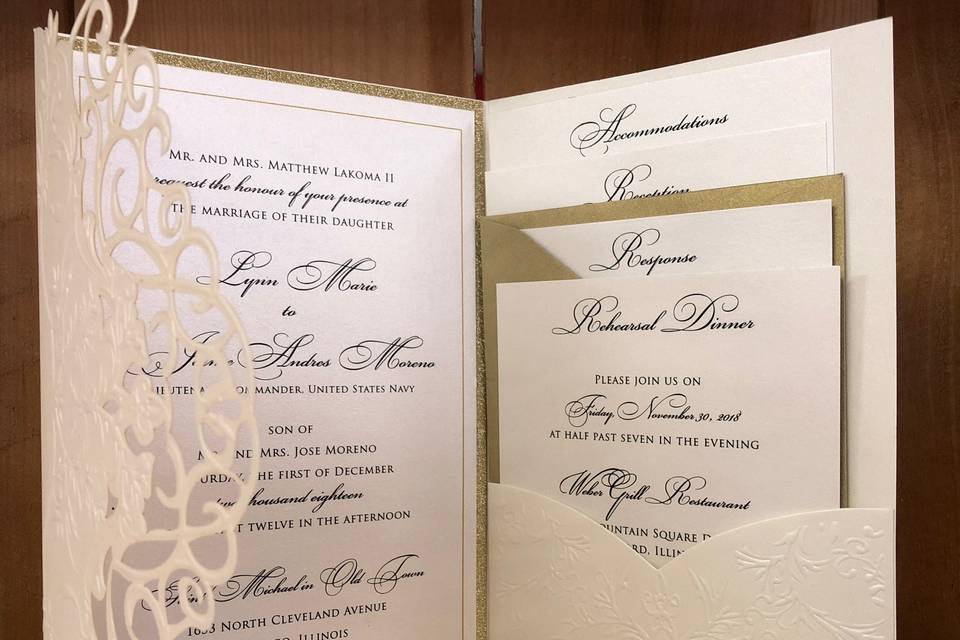 Mr. and Mrs. Matthew Lakoma II
request the honour of your presence at
the marriage of their daughter
Lynn Marie
to
Andres Moreno
Lieutenant Commander, United States Navy
son of
Mr. and Mrs. Jose Moreno
Saturday, the first of December
two thousand eighteen
at twelve in the afternoon
Saint Michael in Old Town
1633 North Cleveland Avenue
Illinois
Accommodations
Reception
Response
Rehearsal Dinner
Please join us on
Friday, November 30, 2018
at half past seven in the evening
Weber Grill Restaurant
ountain Square D
ard, Illin